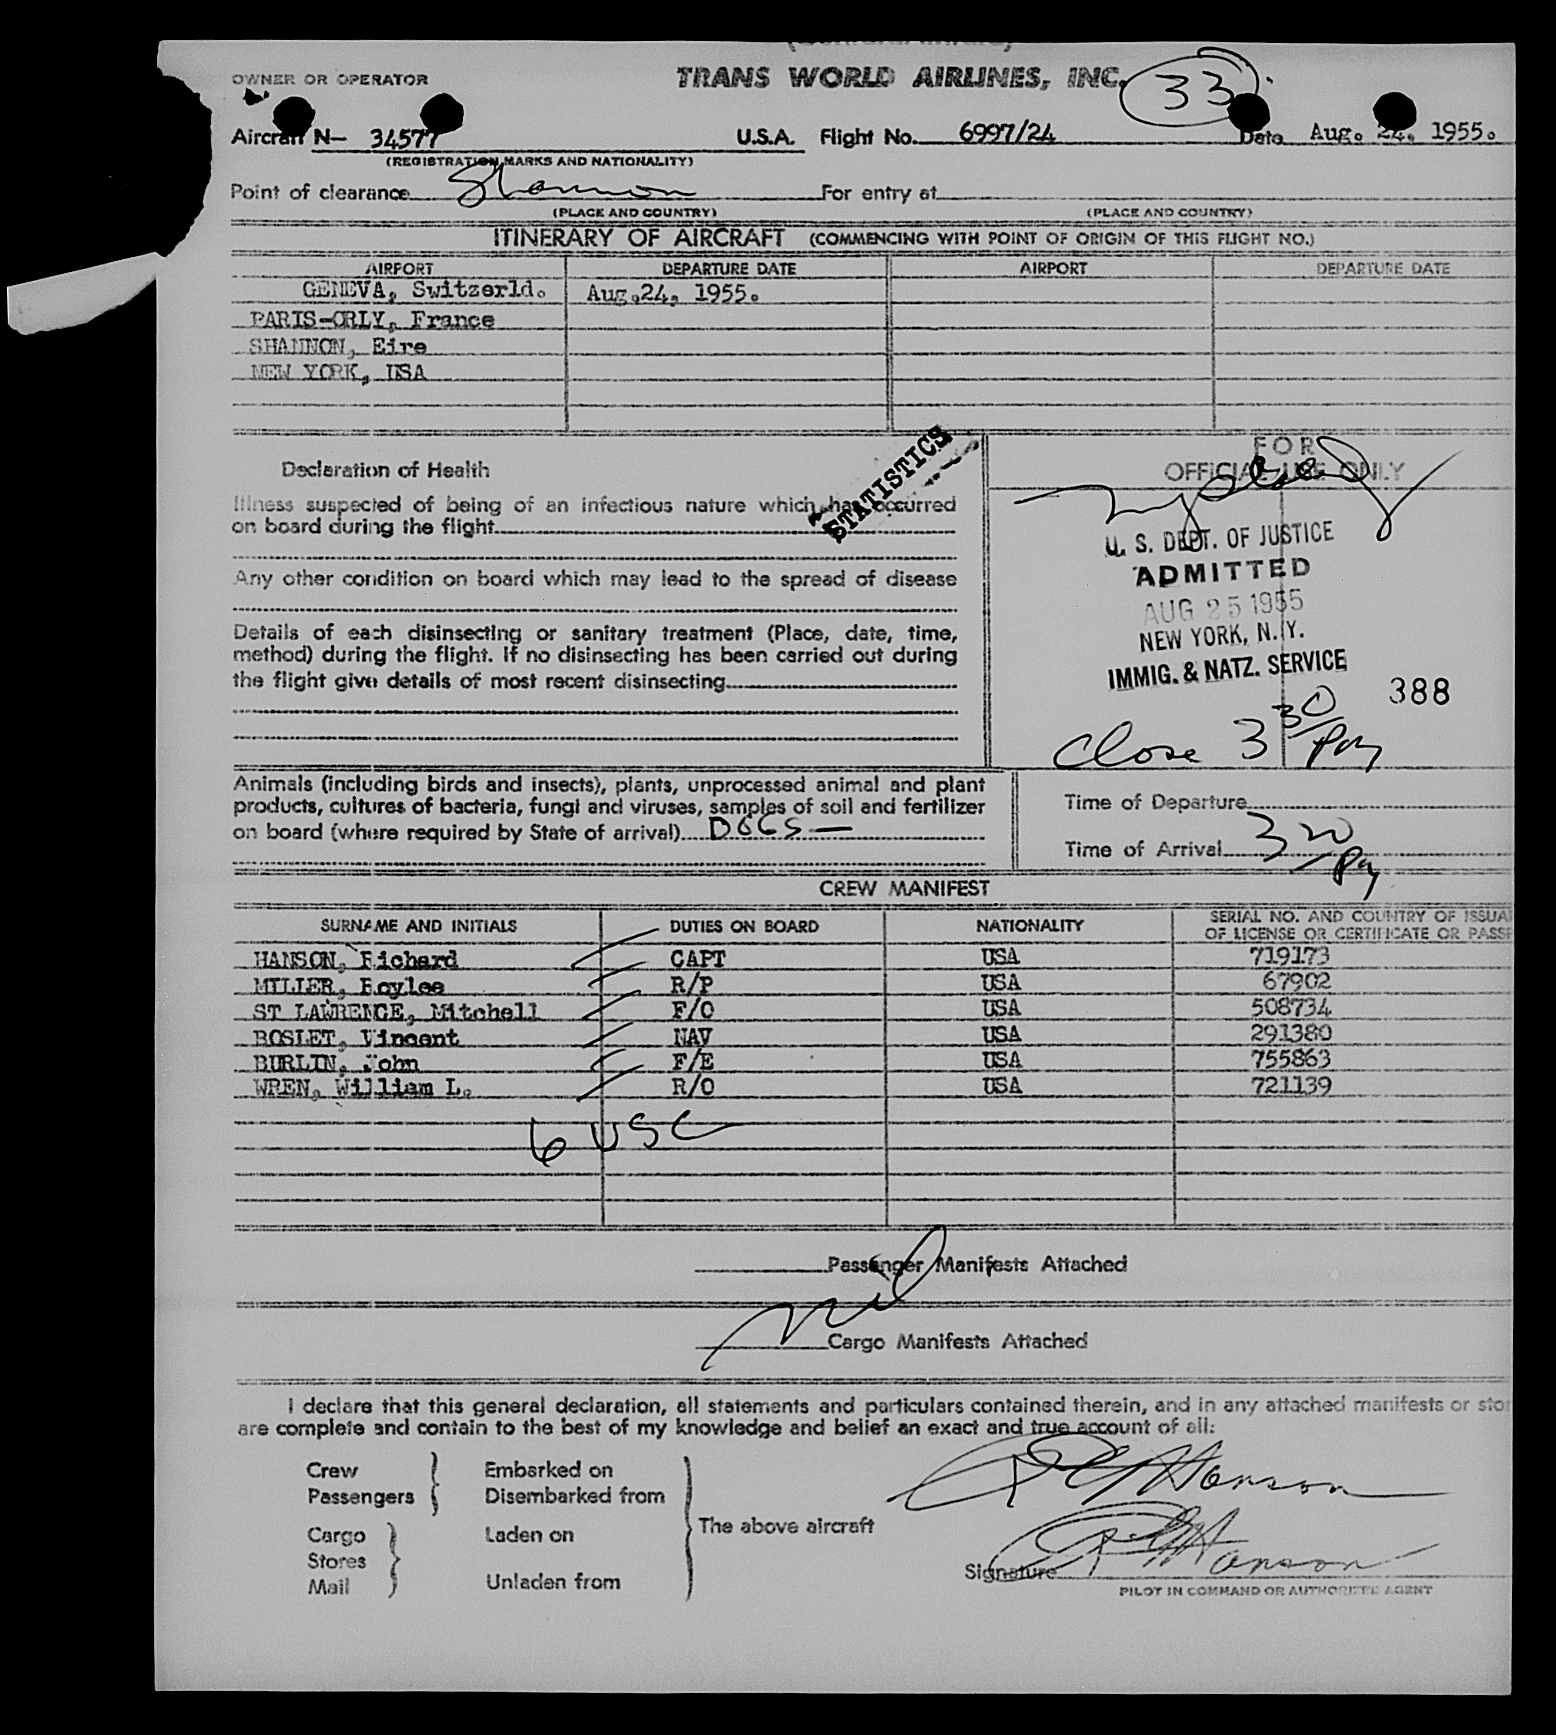 OWNER OR OPERATOR
TRANS WORLD AIRLINES, INC.
33
Aircraft N- 34577 U.S.A. Flight No. 6997/24 Date Aug. 24, 1955.
(REGISTRATION MARKS AND NATIONALITY)
Point of clearance Shannon For entry at
(PLACE AND COUNTRY) (PLACE AND COUNTRY)
ITINERARY OF AIRCRAFT (COMMENCING WITH POINT OF ORIGIN OF THIS FLIGHT NO.)
AIRPORT DEPARTURE DATE AIRPORT DEPARTURE DATE
GENEVA, Switzerld. Aug.24, 1955.
PARIS-ORLY, France
SHANNON, Eire
NEW YORK, USA
STATISTICS
Declaration of Health
Illness suspected of being of an infectious nature which has occurred
on board during the flight
Any other condition on board which may lead to the spread of disease
Details of each disinsecting or sanitary treatment (Place, date, time,
method) during the flight. If no disinsecting has been carried out during
the flight give details of most recent disinsecting
FOR
OFFICIAL USE ONLY
U. S. DEPT. OF JUSTICE
ADMITTED
AUG 25 1955
NEW YORK, N.Y.
IMMIG. & NATZ. SERVICE
388
Close 3 30/PM
Animals (including birds and insects), plants, unprocessed animal and plant
products, cultures of bacteria, fungi and viruses, samples of soil and fertilizer
on board (where required by State of arrival) DOGS —
Time of Departure
Time of Arrival 3 20/PM
CREW MANIFEST
SURNAME AND INITIALS DUTIES ON BOARD NATIONALITY SERIAL NO. AND COUNTRY OF ISSUA
OF LICENSE OR CERTIFICATE OR PASSP
HANSON, Richard CAPT USA 719173
MILLER, Roylee R/P USA 67902
ST LAWRENCE, Mitchell F/O USA 508734
BOSLET, Vincent NAV USA 291380
BURLIN, John F/E USA 755863
WREN, William L. R/O USA 721139
6 USC
Passenger Manifests Attached
nil
Cargo Manifests Attached
I declare that this general declaration, all statements and particulars contained therein, and in any attached manifests or stor
are complete and contain to the best of my knowledge and belief an exact and true account of all:
Crew Embarked on
Passengers Disembarked from
The above aircraft
Cargo Laden on
Stores
Mail Unladen from
R G Hanson
Signature R G Hanson
PILOT IN COMMAND OR AUTHORIZED AGENT